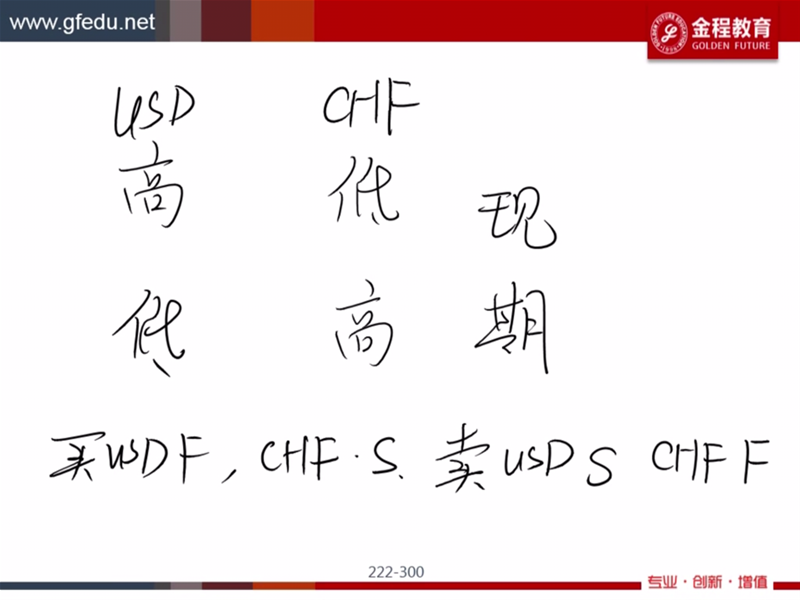 www.gfedu.net
金程教育
GOLDEN FUTURE
USD CHF
高 低 现
低 高 期
买USD F, CHF·S、卖USD S CHF F
222-300
专业·创新·增值